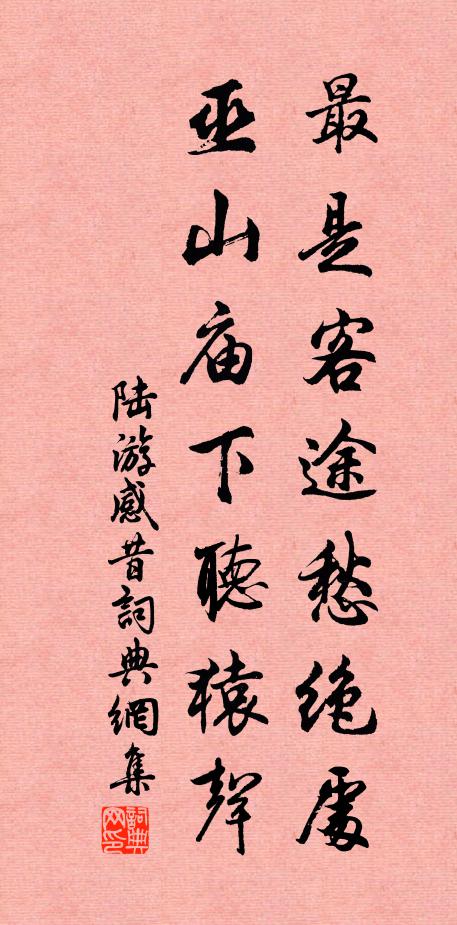 最是客途愁绝處
巫山庙下聽猿聲
陆游感昔詞典網集
詞典网印